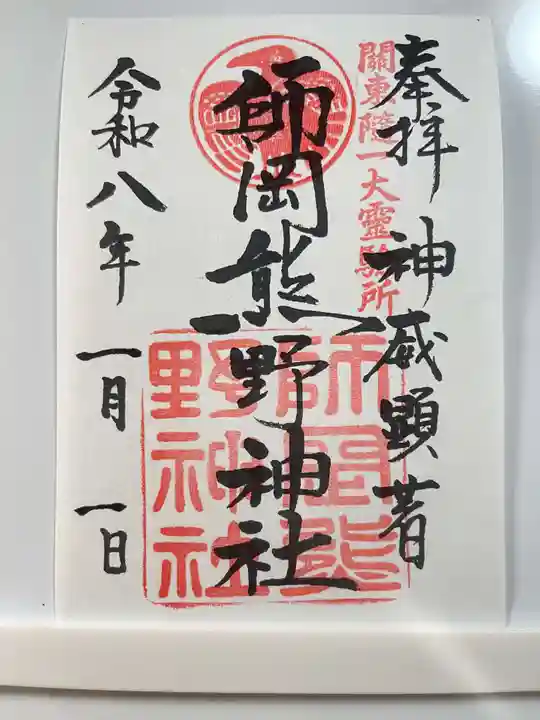 奉拝 神威顕著
關東隨一大靈驗所
師岡熊野神社
師岡熊野神社
令和八年 一月 一日